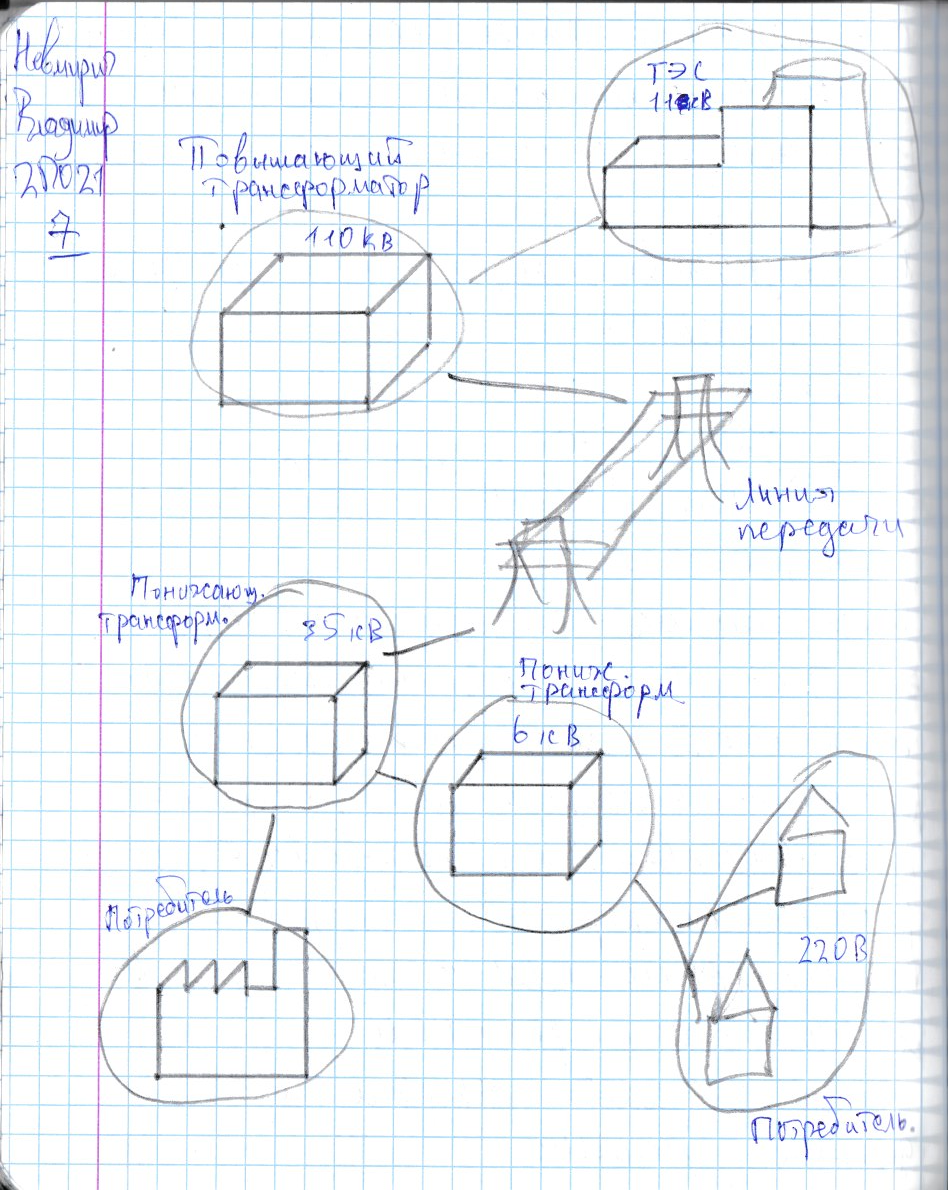 Владимир
2П021
7
ТЭС
11кВ
Повышающий
трансформатор
110кВ
Линия
передачи
Понижающ.
трансформ.
35кВ
Пониж.
трансформ
6кВ
Потребитель
220В
Потребитель.